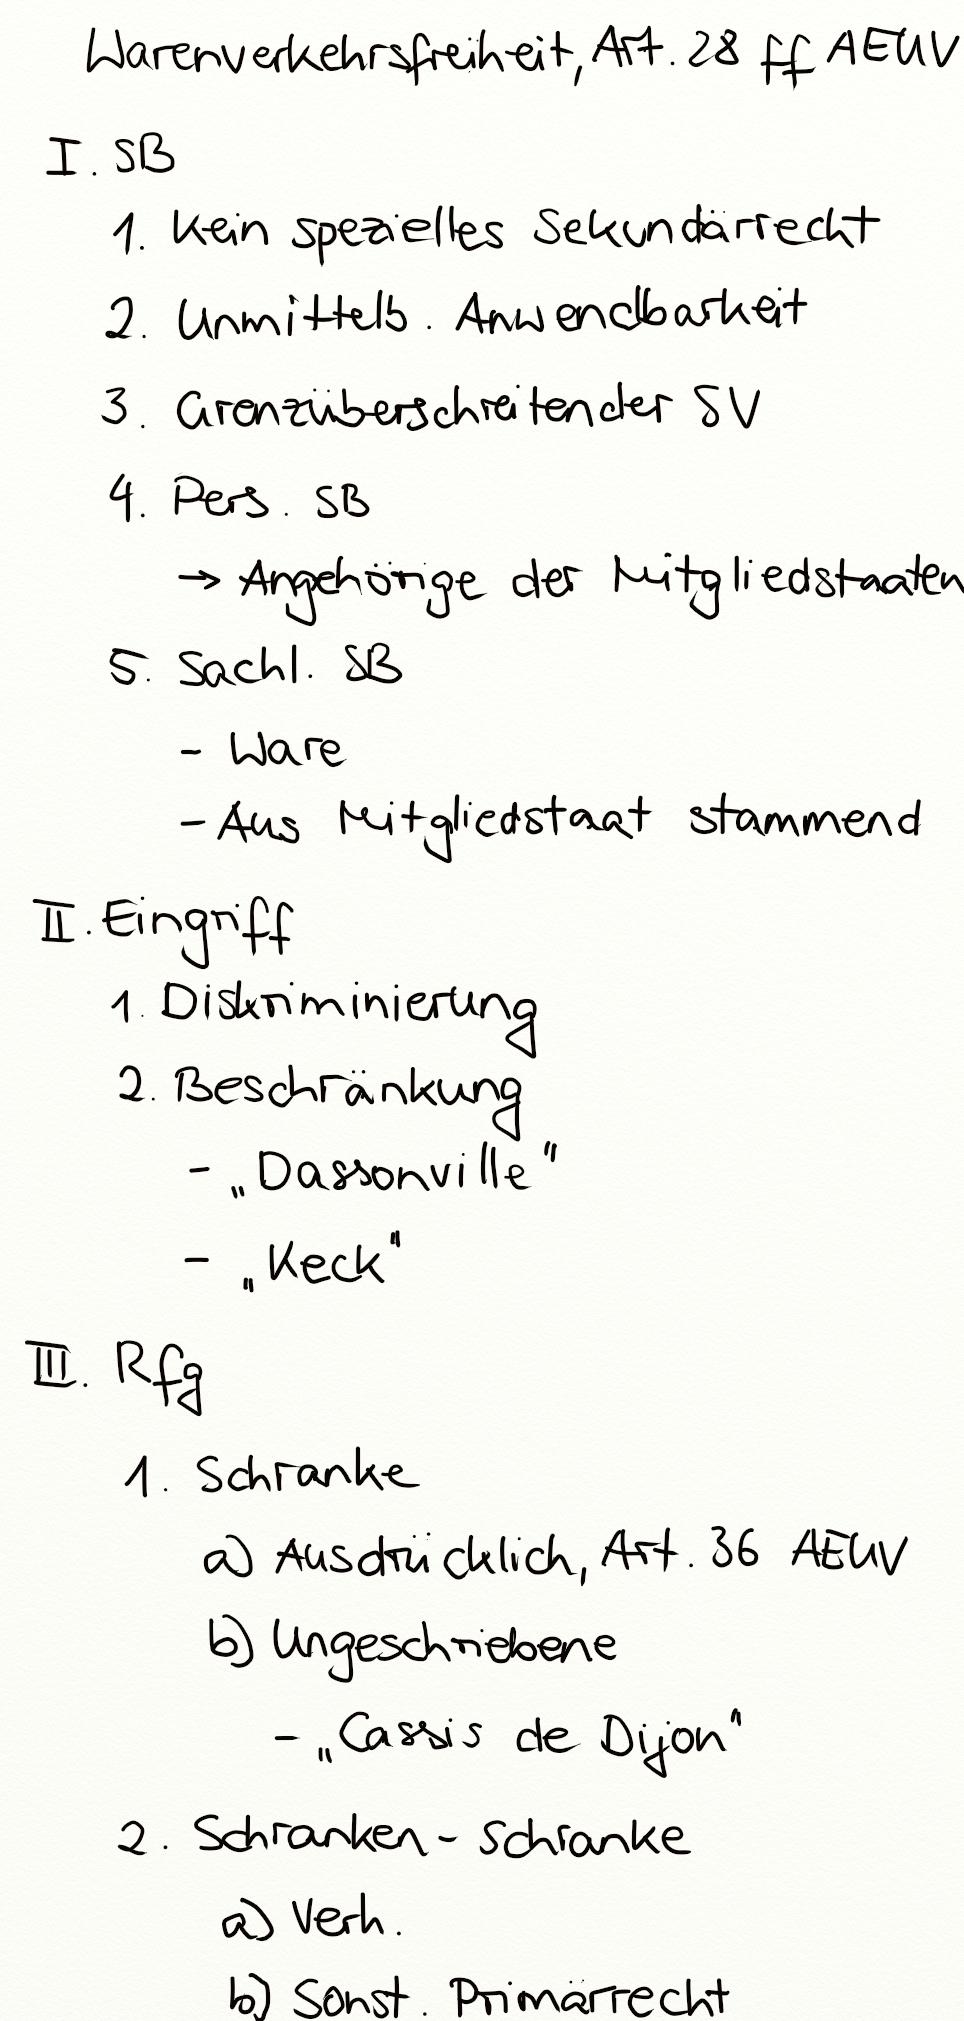 Warenverkehrsfreiheit, Art. 28 ff AEUV
I. SB
1. Kein spezielles Sekundärrecht
2. Unmittelb. Anwendbarkeit
3. Grenzüberschreitender SV
4. Pers. SB
→ Angehörige der Mitgliedstaaten
5. Sachl. SB
- Ware
- Aus Mitgliedstaat stammend
II. Eingriff
1. Diskriminierung
2. Beschränkung
- „Dassonville"
- „Keck"
III. Rfg
1. Schranke
a) Ausdrücklich, Art. 36 AEUV
b) Ungeschriebene
- „Cassis de Dijon"
2. Schranken-Schranke
a) Verh.
b) Sonst. Primärrecht